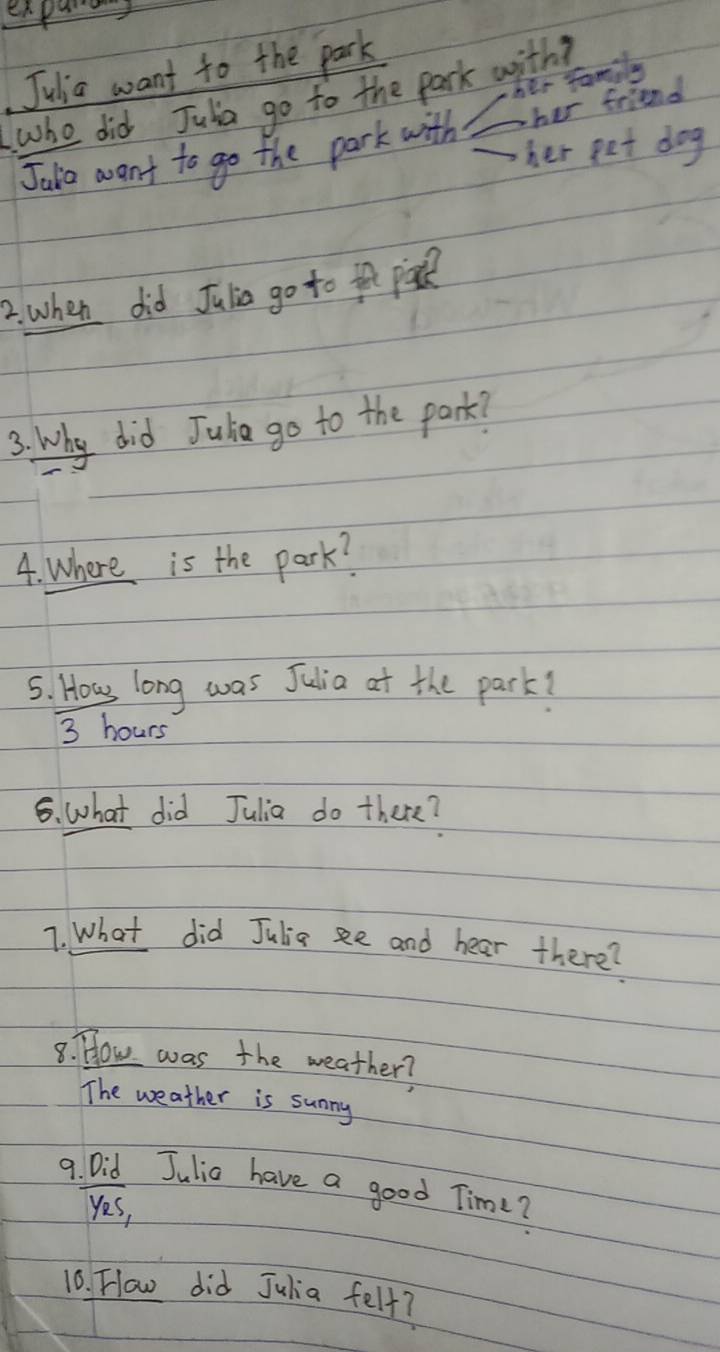 Julia want to the park
1. Who did Julia go to the park with?
her family
Julia want to go the park with her friend
her pet dog
2. When did Julia go to the park?
3. Why did Julia go to the park?
4. Where is the park?
5. How long was Julia at the park?
3 hours
6. What did Julia do there?
7. What did Julia see and hear there?
8. How was the weather?
The weather is sunny
9. Did Julia have a good Time?
Yes,
10. How did Julia felt?